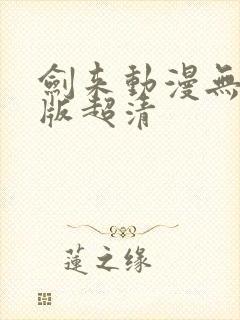 劍来動漫無
版超清
蓮之缘